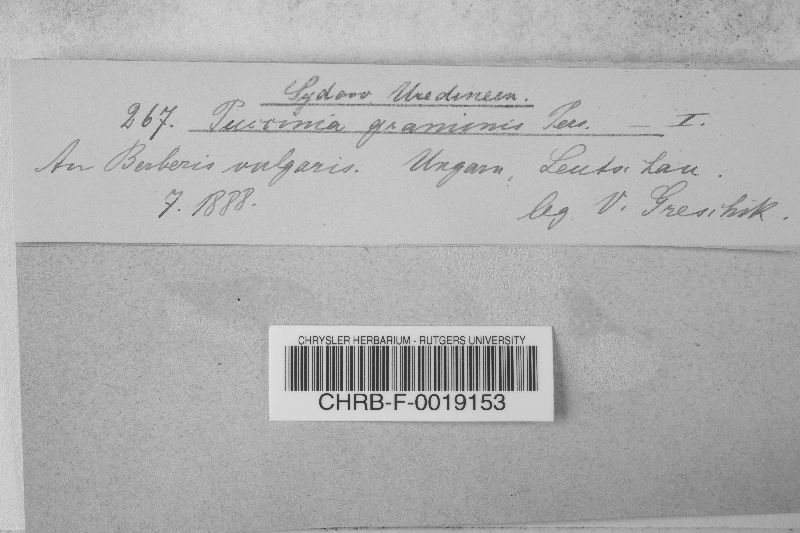 Sydow Uredineen.
267. Puccinia graminis Pers. — I.
An Berberis vulgaris. Ungarn, Leutschau.
7. 1888. leg V. Greschik.
CHRYSLER HERBARIUM - RUTGERS UNIVERSITY
CHRB-F-0019153